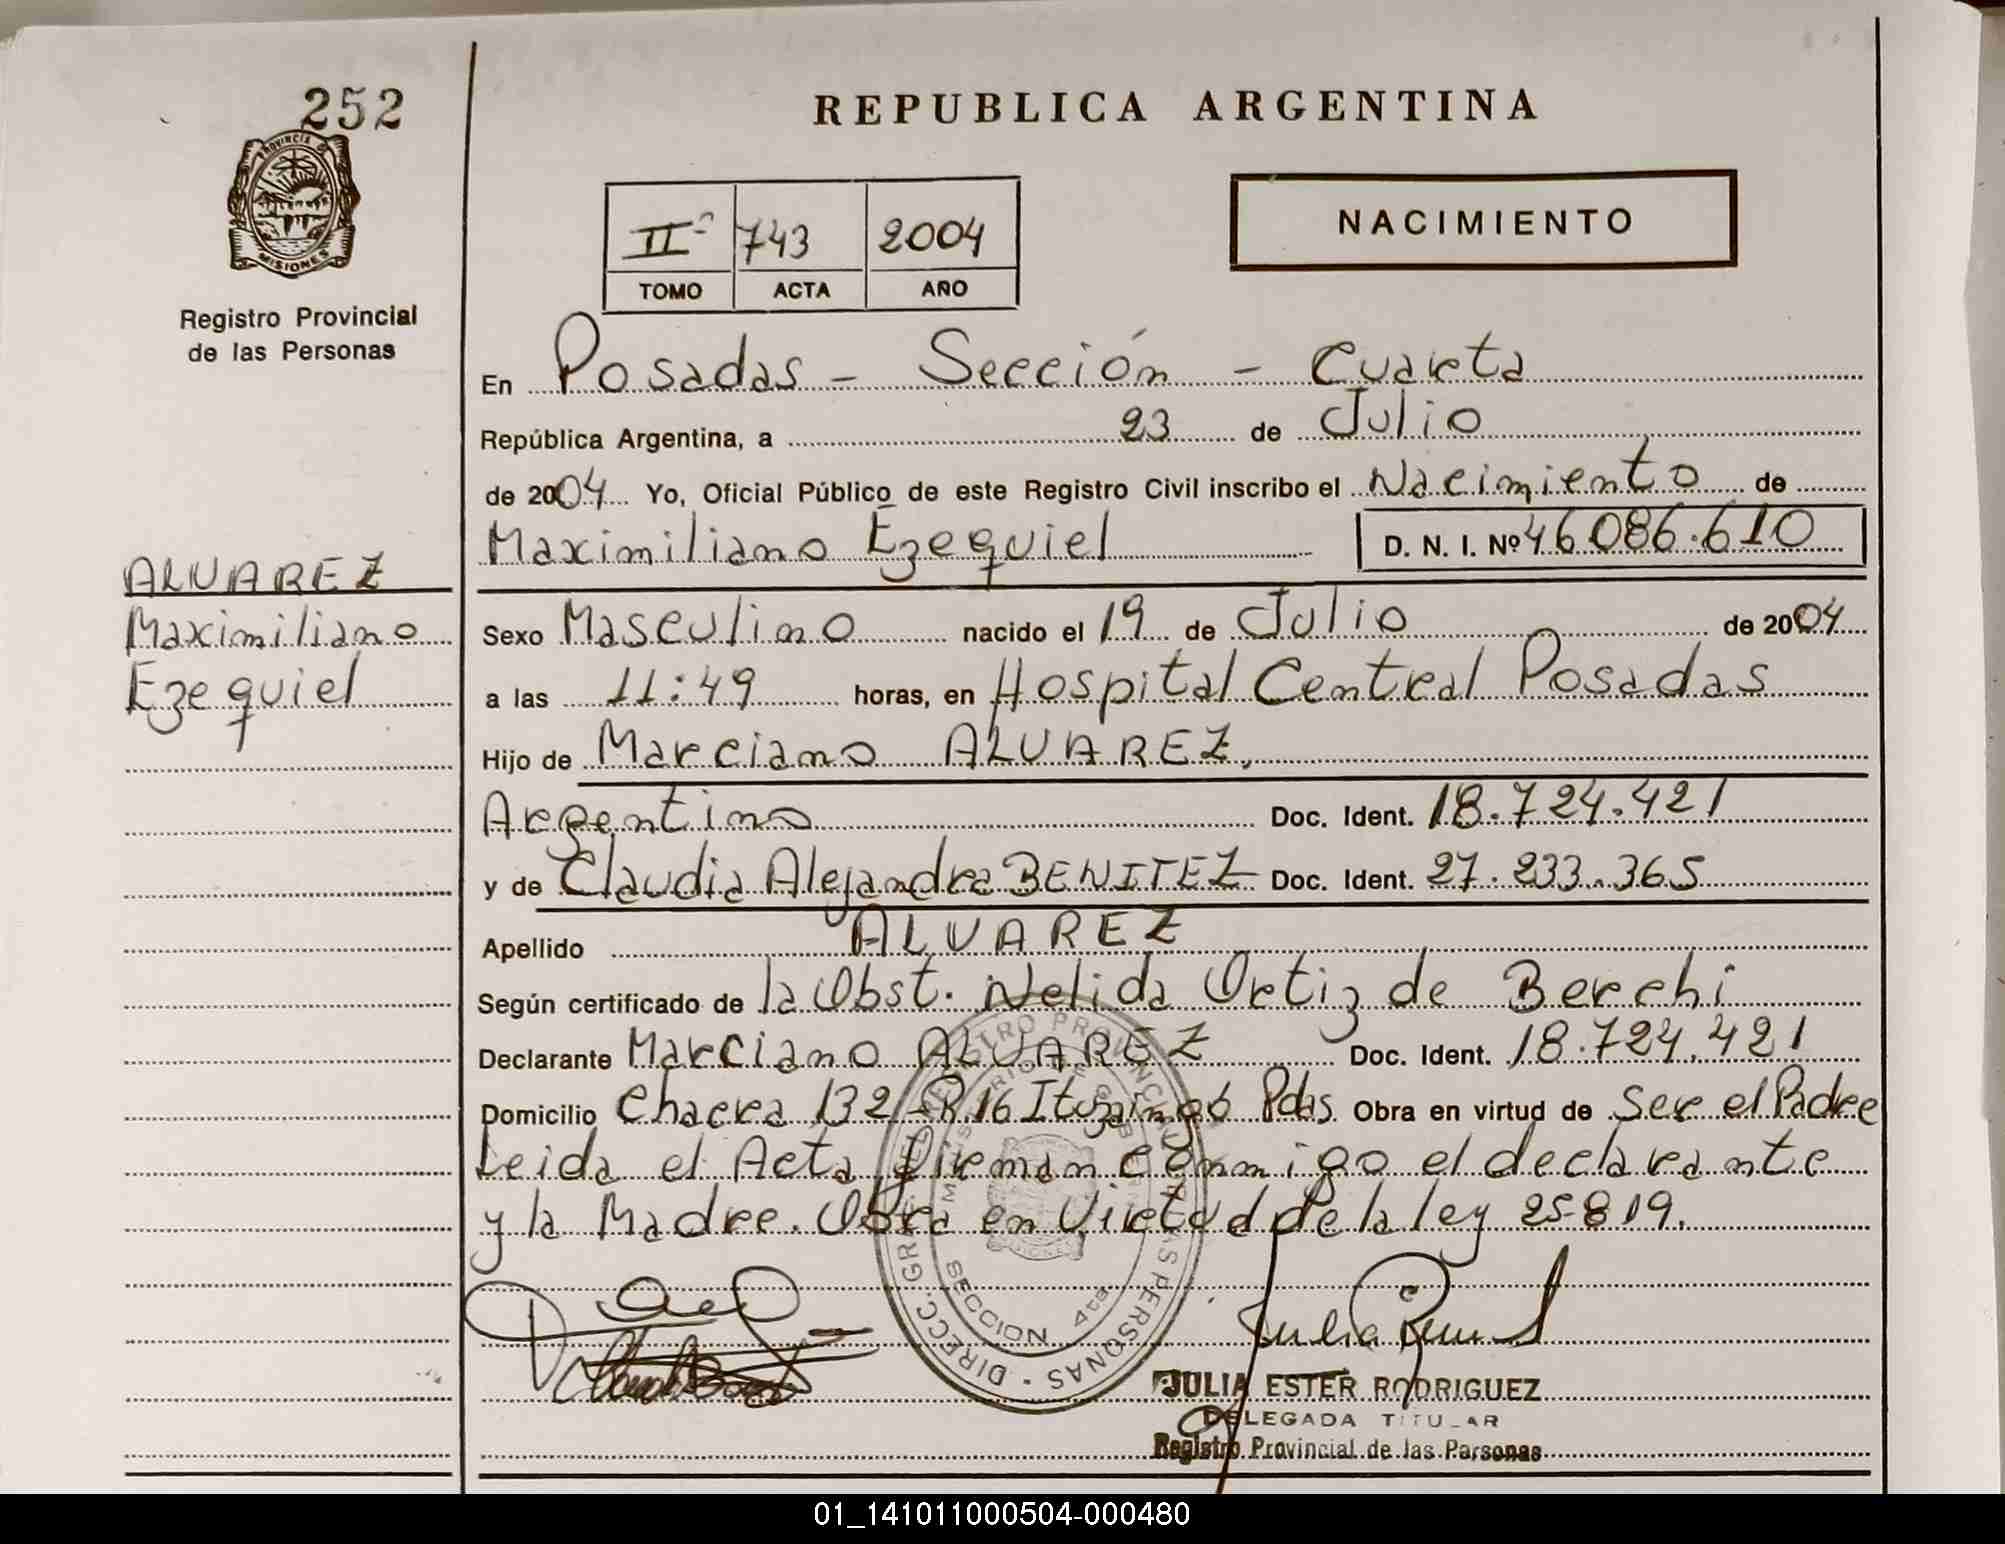 252
PROVINCIA DE
MISIONES
Registro Provincial
de las Personas
REPUBLICA ARGENTINA
IIº 743 2004
TOMO ACTA AÑO
NACIMIENTO
En Posadas - Sección - Cuarta
República Argentina, a 23 de Julio
de 2004 Yo, Oficial Público de este Registro Civil inscribo el Nacimiento de
Maximiliano Ezequiel D. N. I. Nº 46086.610
ALVAREZ
Maximiliano
Ezequiel
Sexo Masculino nacido el 19 de Julio de 2004
a las 11:49 horas, en Hospital Central Posadas
Hijo de Marciano ALVAREZ,
Argentino Doc. Ident. 18.724.421
y de Claudia Alejandra BENITEZ Doc. Ident. 27.233.365
Apellido ALVAREZ
Según certificado de la Obst. Nelida Ortiz de Berchi
Declarante Marciano ALVAREZ Doc. Ident. 18.724.421
Domicilio Chacra 132 Ituzaingó Pdas. Obra en virtud de Ser el Padre
Leida el Acta firman conmigo el declarante
y la Madre. Obra en Virtud de la ley 25819.
DIRECC. GRAL. REGISTRO PROVINCIAL DE LAS PERSONAS
MINISTERIO DE GOBIERNO
SECCION 4ta
JULIA ESTER RODRIGUEZ
DELEGADA TITULAR
Registro Provincial de las Personas
01_141011000504-000480